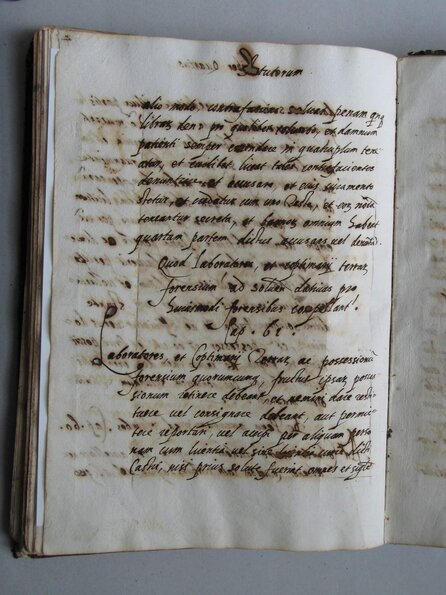 Liber Quartus
Statutorum
alio modo contrafaciens solvat penam quinq
libras den: pro qualibet et damnum
patienti semper emendare in quatuplum tene
atur, et cuilibet liceat tales contrafacientes
denunciare et accusare, et eius iuramento
stetur, et credatur cum uno teste, et eius noīa
teneantur secreta, et bannorum omnium habeat
quartam partem dictus accusans vel denuncī.
Quod Laboratores, et coptimarij terrarū
forensium ad solvend dativas pro
huiusmodi forensibus compellant.
Cap. 61.
Laboratores, et Coptimarij Terrarū, ac possessionū
forensium quorumcunq, fructus ipsarū posses
sionum retinere debeant, et nemini dare resti
tuere vel consignare debeant, aut permit
tere reportari, vel accipi per aliquam perso
nam cum licentia, vel sine licentia dicti
Castri, nisi prius solute fuerint omnes et single